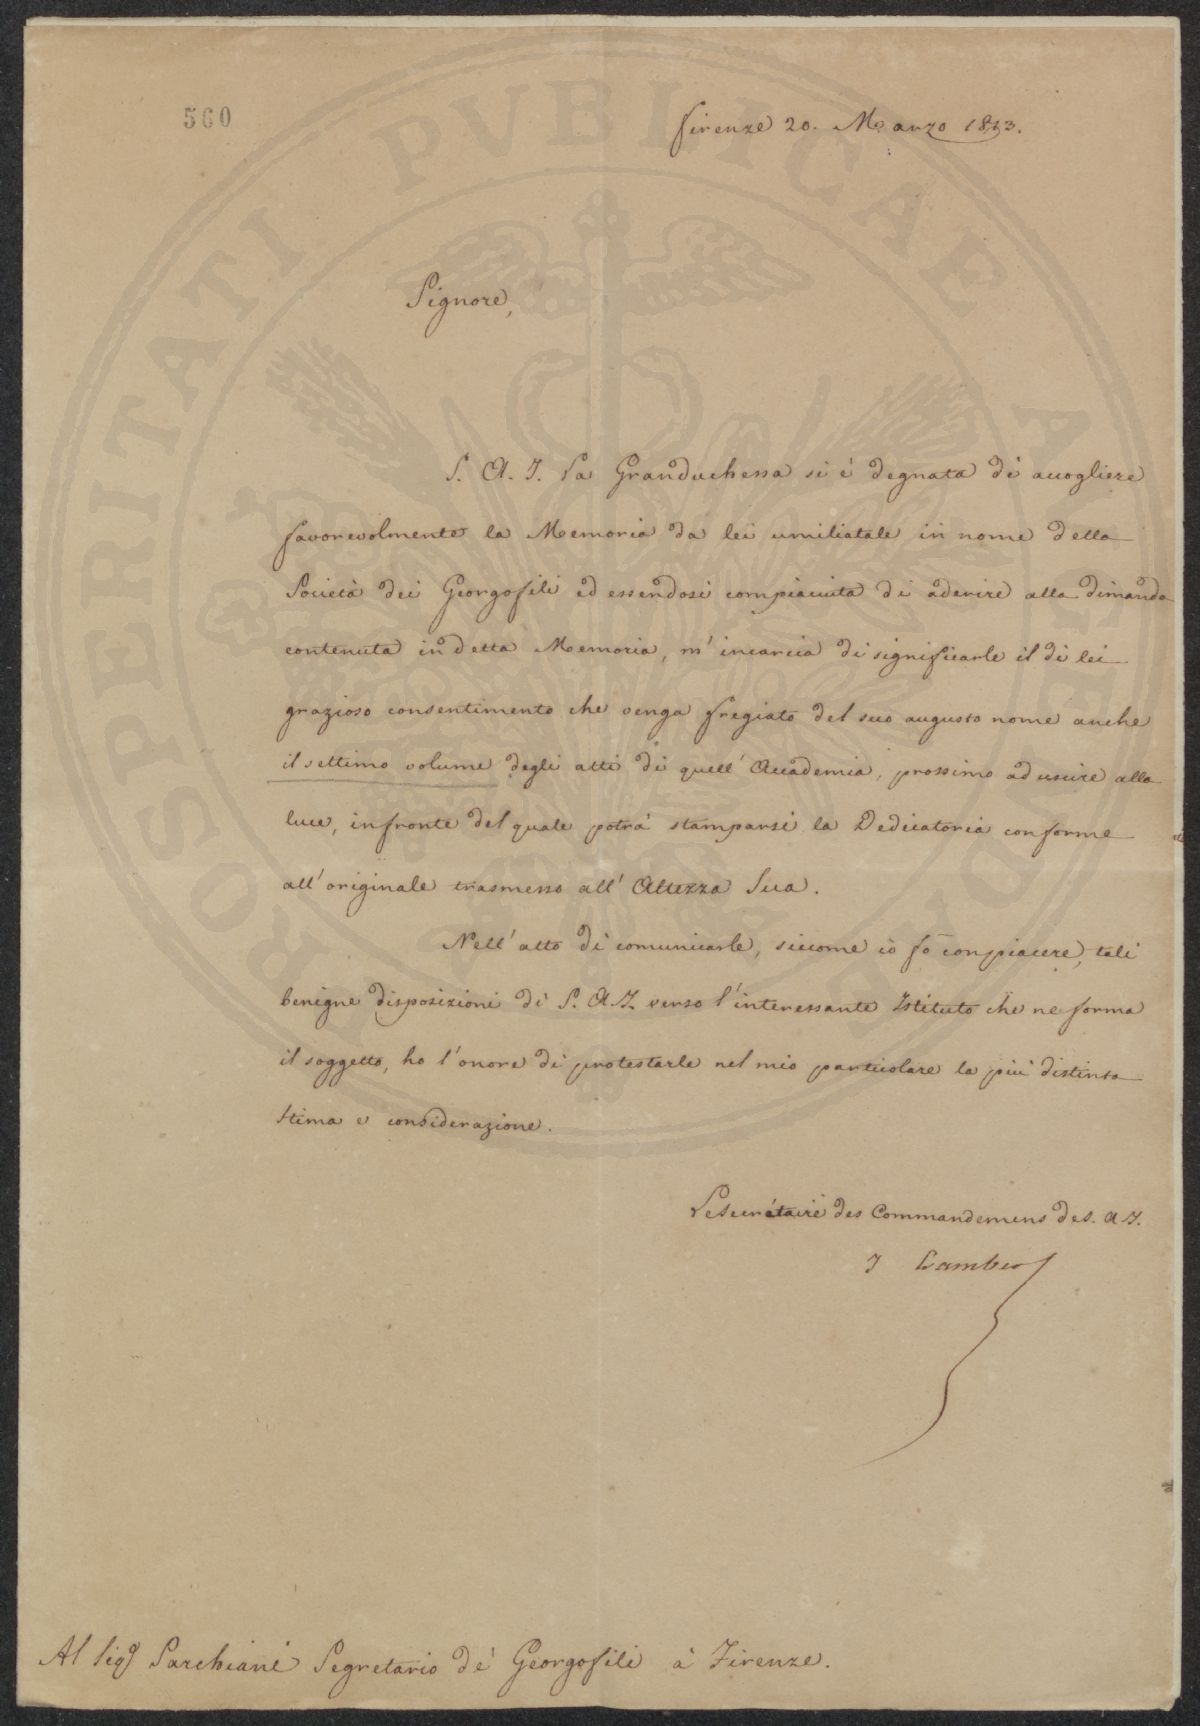 560
Firenze 20. Marzo 1813.
Signore,
S. A. I. La Granduchessa si è degnata di accogliere
favorevolmente la Memoria da lei umiliatale in nome della
Società dei Georgofili ed essendosi compiaciuta di aderire alla dimanda
contenuta in detta Memoria, m'incarica di significarle il di lei
grazioso consentimento che venga fregiato del suo augusto nome anche
il settimo volume degli atti di quell'Accademia, prossimo ad uscire alla
luce, in fronte del quale potrà stamparsi la Dedicatoria conforme
all'originale trasmesso all'Altezza Sua.
Nell'atto di comunicarle, siccome io fò con piacere, tali
benigne disposizioni di S. A. I. verso l'interessante Istituto che ne forma
il soggetto, ho l'onore di protestarle nel mio particolare la più distinta
stima e considerazione.
Le Secrétaire des Commandemens de S. A. I.
Al Sigr Sarchiani Segretario de' Georgofili à Firenze.
PROSPERITATI PVBLICAE AVGENDAE